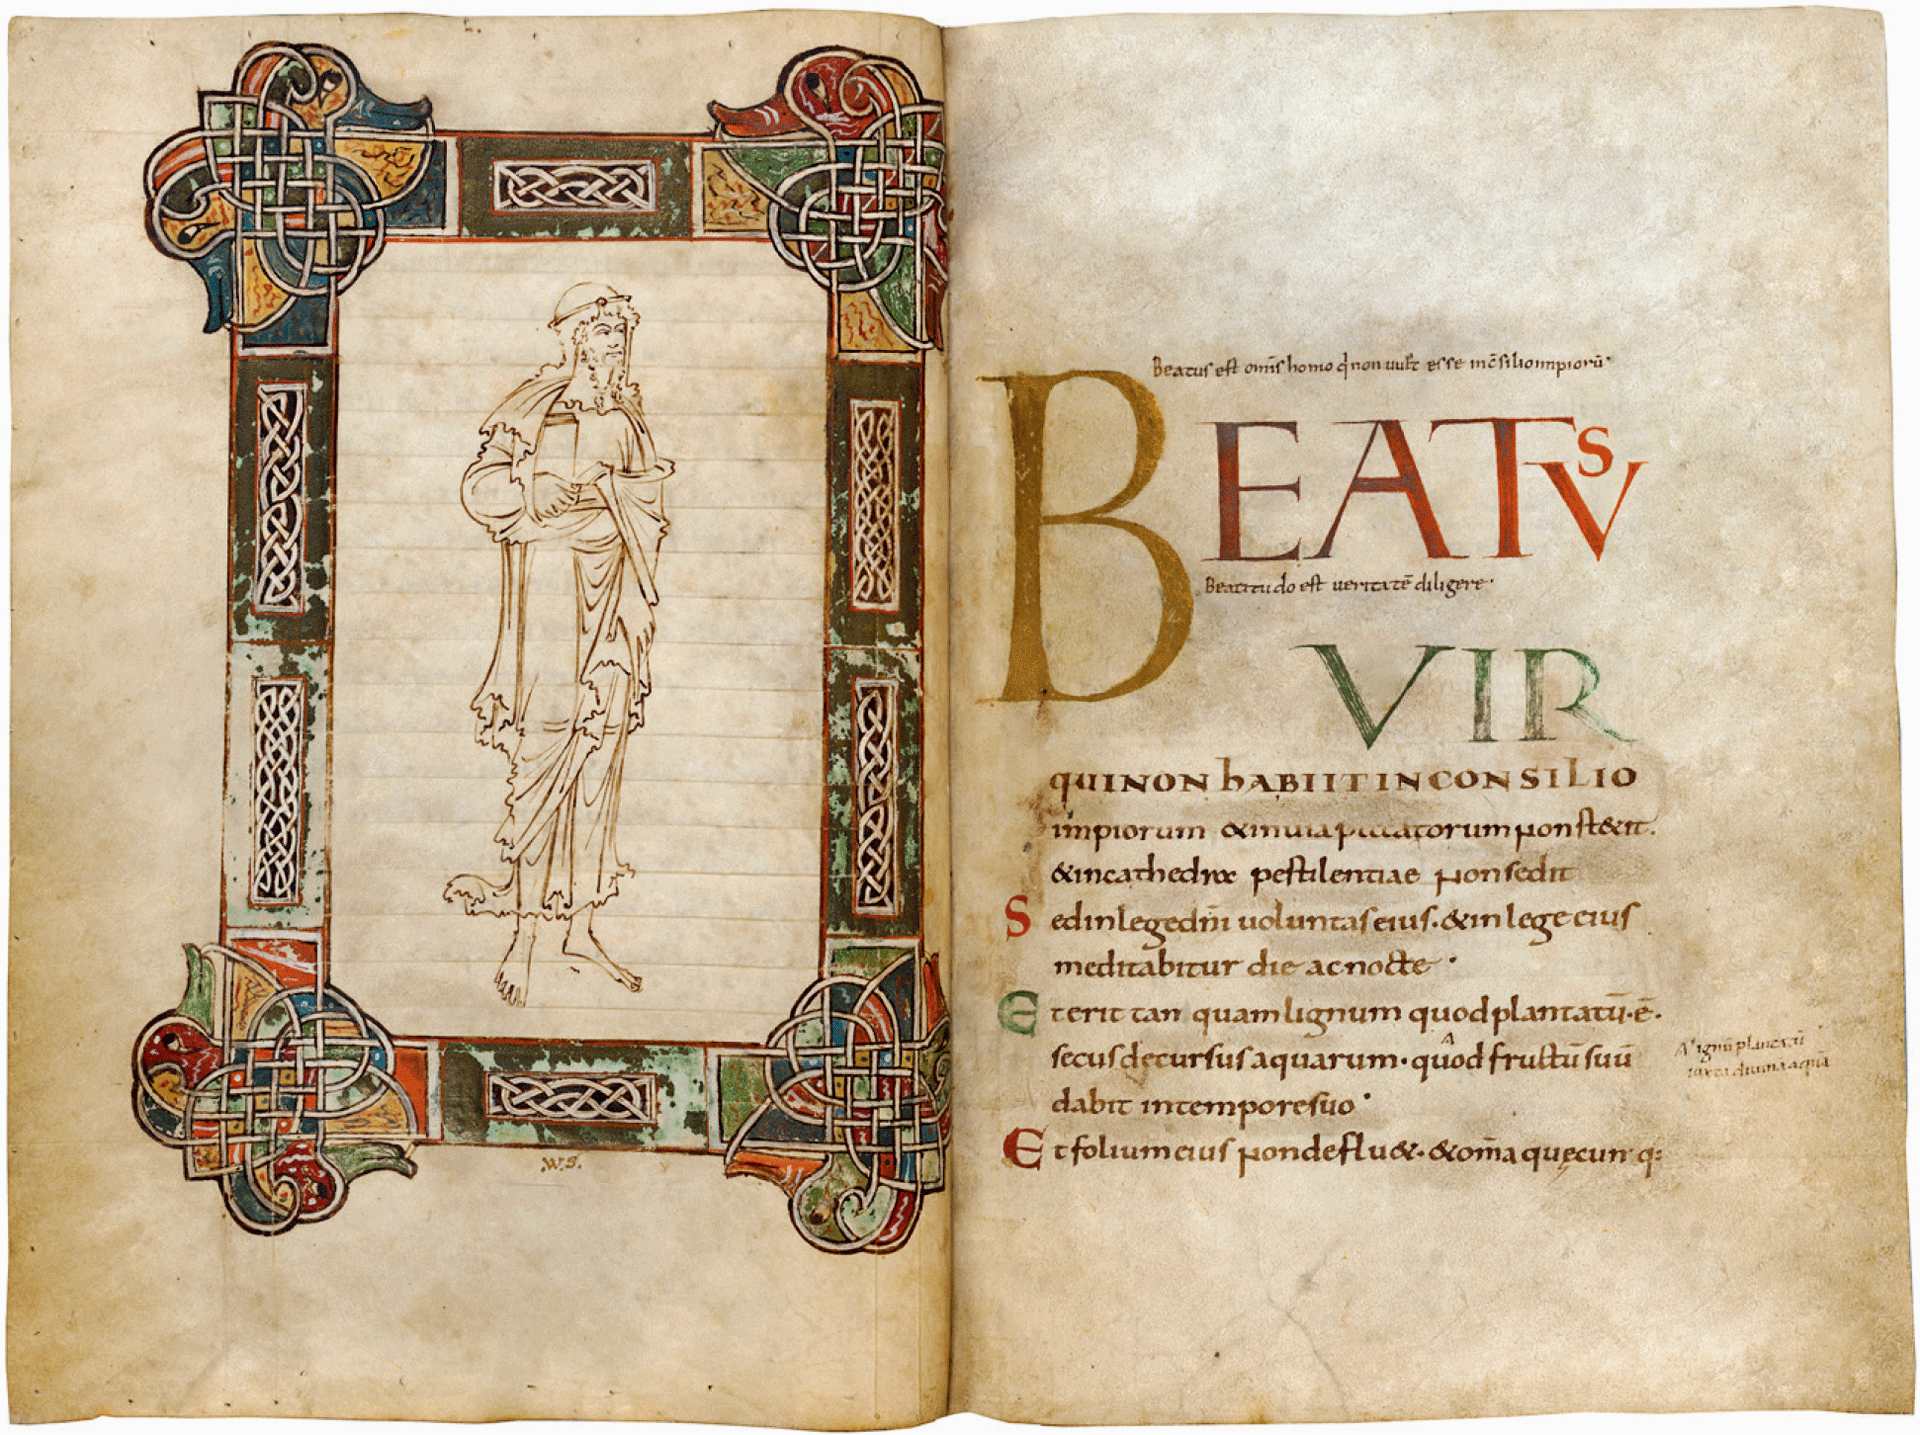 .W.S.
Beatus est om̄is homo q̇ non uult esse in c̄silio impiorū·
BEATVS
Beatitudo est ueritatē diligere·
VIR
qui NON hABIIT IN CONSILIO
impiorum & in uia peccatorum non stetit.
& in cathedra pestilentiae non sedit
Sed in lege dn̄i uoluntas eius· & in lege eius
meditabitur die ac nocte·
Et erit tan quam lignum quod plantatū·ē·
secus decursus aquarum· quod fructū suū
dabit in tempore suo·
Et folium eius non defluet· & om̄a quęcunq:
lignū plantatū
iuxta diuina aquā